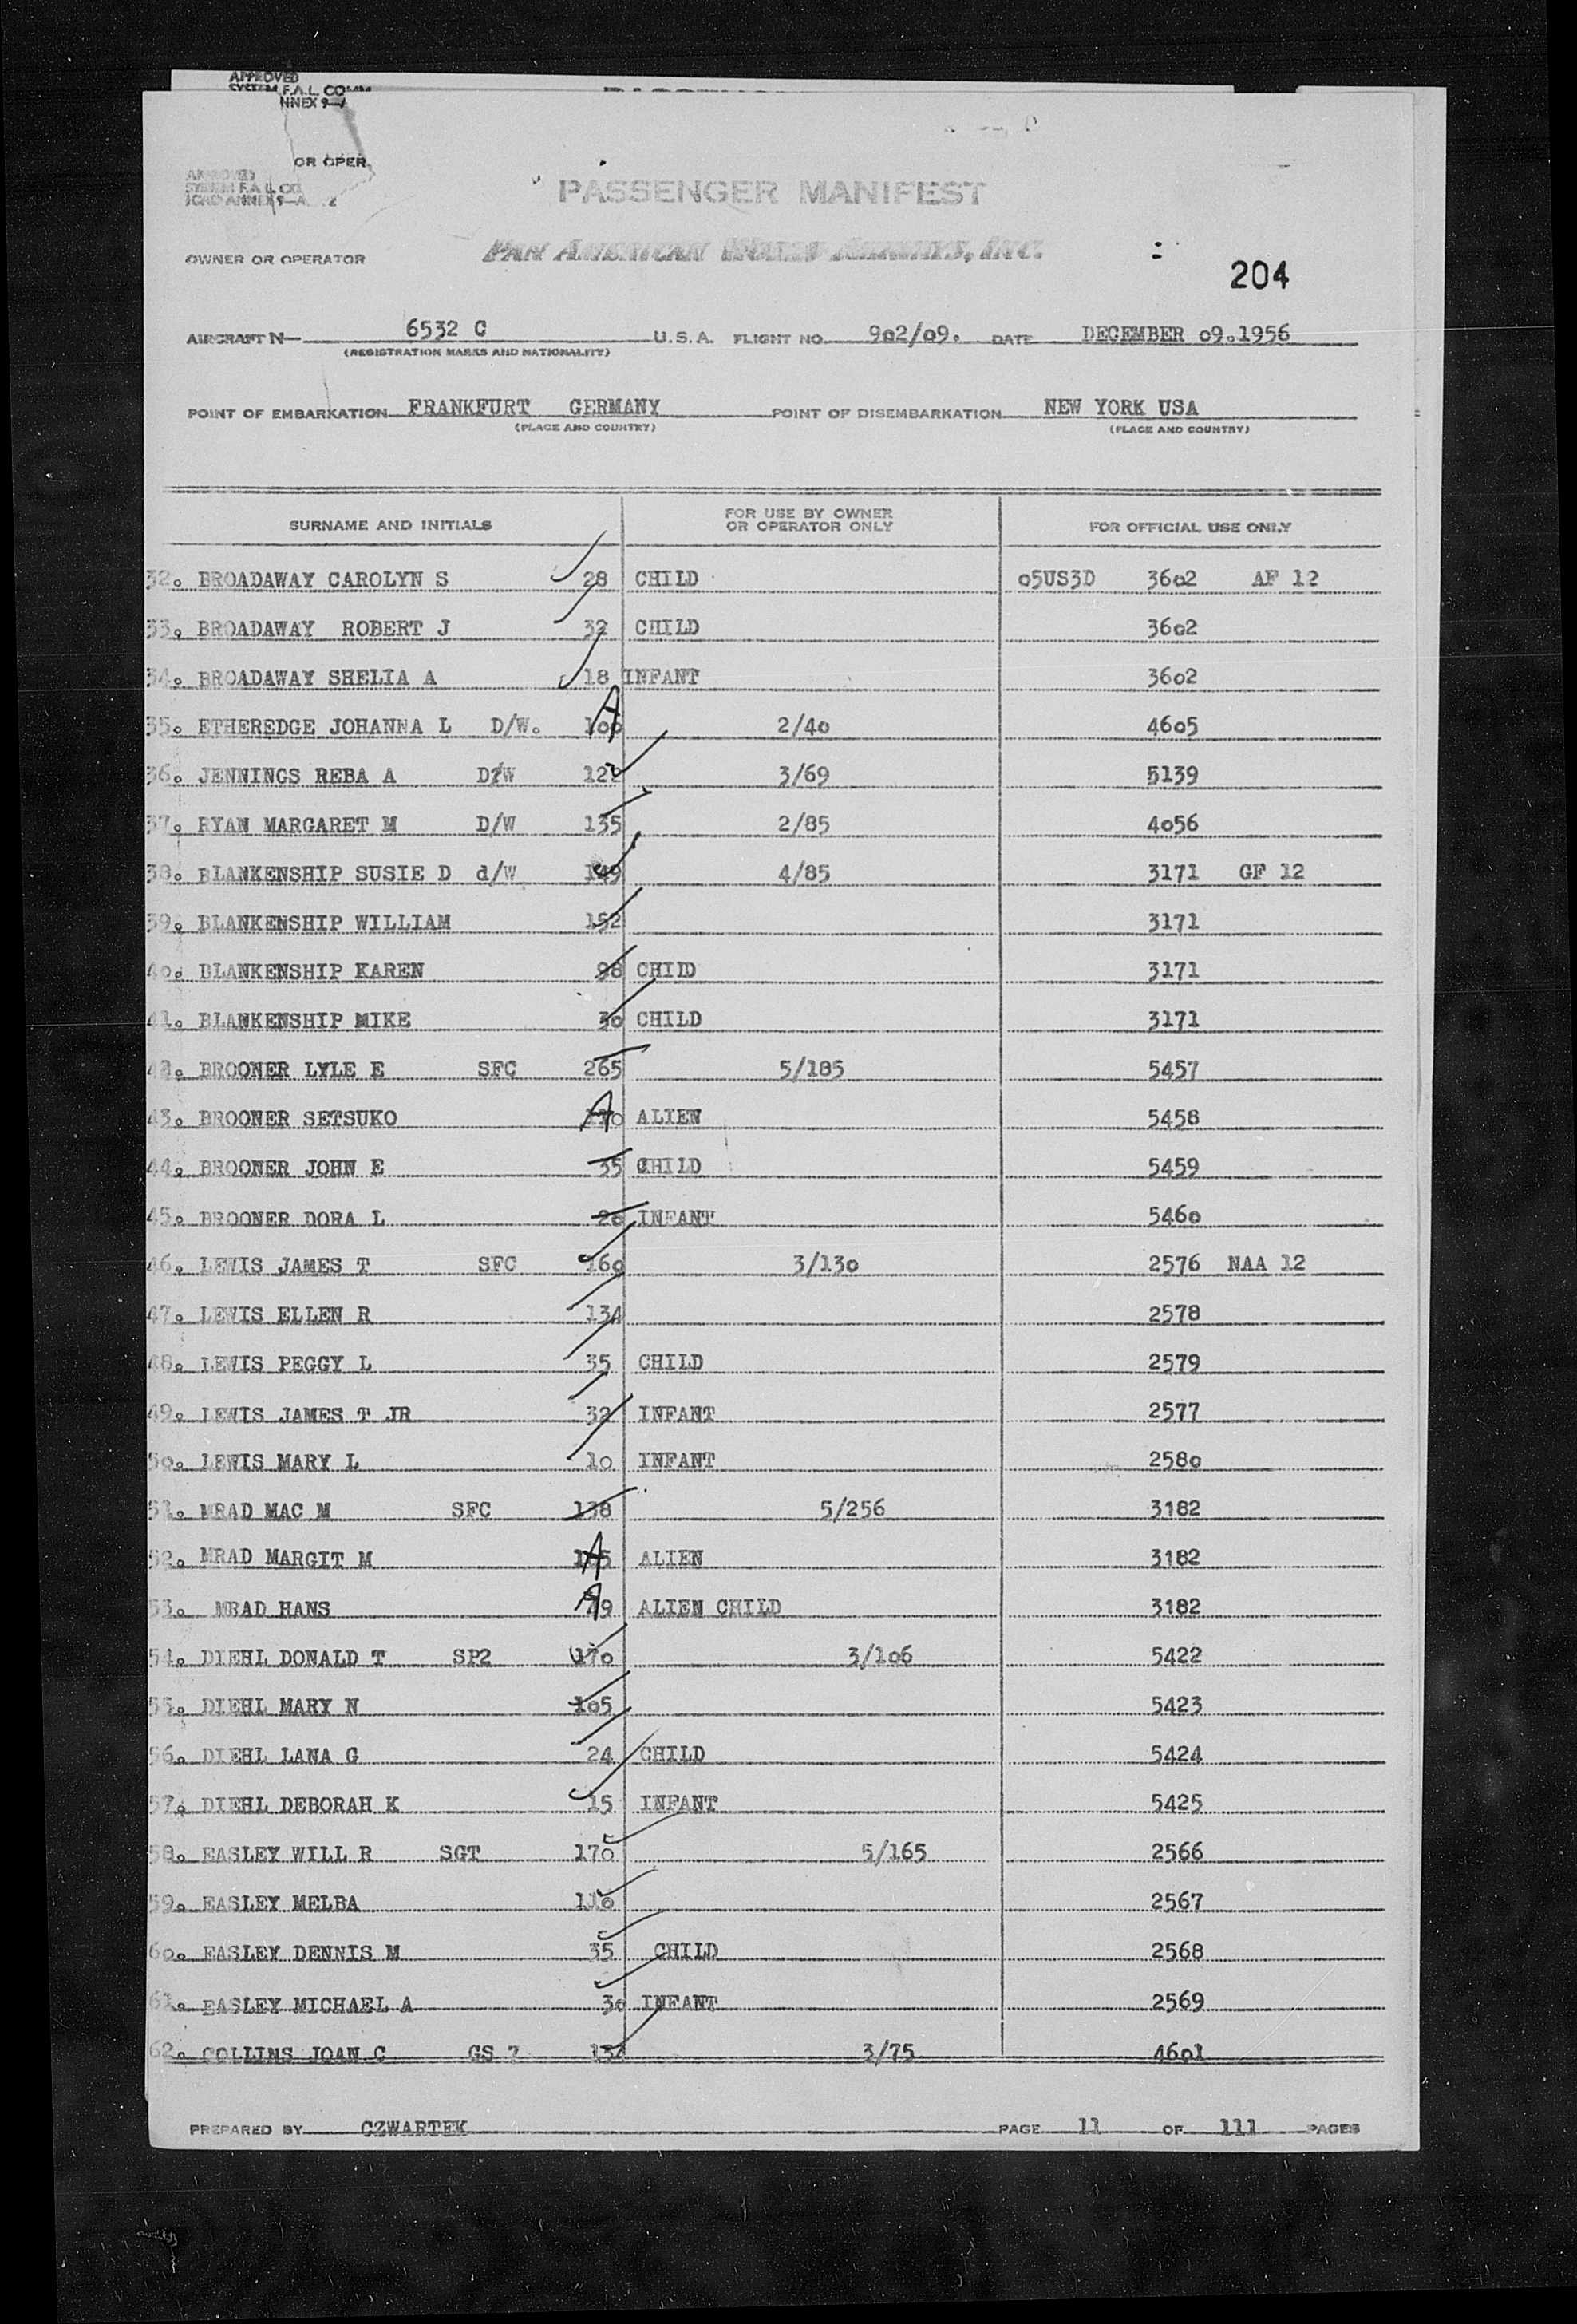 APPROVED
SYSTEM F.A.L. COMM
NNEX 9—
OR OPER
SYSTEM F.A.L. CO
ICAO ANNEX 9—A
PASSENGER MANIFEST
OWNER OR OPERATOR PAN AMERICAN WORLD AIRWAYS, INC.
204
AIRCRAFT N— 6532 C U.S.A. FLIGHT NO. 902/09. DATE DECEMBER 09.1956
(REGISTRATION MARKS AND NATIONALITY)
POINT OF EMBARKATION FRANKFURT GERMANY POINT OF DISEMBARKATION NEW YORK USA
(PLACE AND COUNTRY) (PLACE AND COUNTRY)
SURNAME AND INITIALS FOR USE BY OWNER OR OPERATOR ONLY FOR OFFICIAL USE ONLY
32. BROADAWAY CAROLYN S 28 CHILD 05US3D 3602 AF 12
33. BROADAWAY ROBERT J 32 CHILD 3602
34. BROADAWAY SHELIA A 18 INFANT 3602
35. ETHEREDGE JOHANNA L D/W. 100 A 2/40 4605
36. JENNINGS REBA A D/W 122 3/69 5139
37. RYAN MARGARET M D/W 135 2/85 4056
38. BLANKENSHIP SUSIE D d/W 149 4/85 3171 GF 12
39. BLANKENSHIP WILLIAM 152 3171
40. BLANKENSHIP KAREN 98 CHIID 3171
41. BLANKENSHIP MIKE 30 CHILD 3171
42. BROONER LYLE E SFC 265 5/185 5457
43. BROONER SETSUKO A ALIEN 5458
44. BROONER JOHN E 35 CHILD 5459
45. BROONER DORA L 20 INFANT 5460
46. LEWIS JAMES T SFC 160 3/130 2576 NAA 12
47. LEWIS ELLEN R 134 2578
48. LEWIS PEGGY L 35 CHILD 2579
49. LEWIS JAMES T JR 32 INFANT 2577
50. LEWIS MARY L 10 INFANT 2580
51. MRAD MAC M SFC 138 5/256 3182
52. MRAD MARGIT M A ALIEN 3182
53. MRAD HANS A ALIEN CHILD 3182
54. DIEHL DONALD T SP2 170 3/106 5422
55. DIEHL MARY N 105 5423
56. DIEHL LANA G 24 CHILD 5424
57. DIEHL DEBORAH K 15 INFANT 5425
58. EASLEY WILL R SGT 170 5/165 2566
59. EASLEY MELBA 110 2567
60. EASLEY DENNIS M 35 CHILD 2568
61. EASLEY MICHAEL A 30 INFANT 2569
62. COLLINS JOAN C GS 7 3/75 4601
PREPARED BY CZWARTEK PAGE 11 OF 111 PAGES